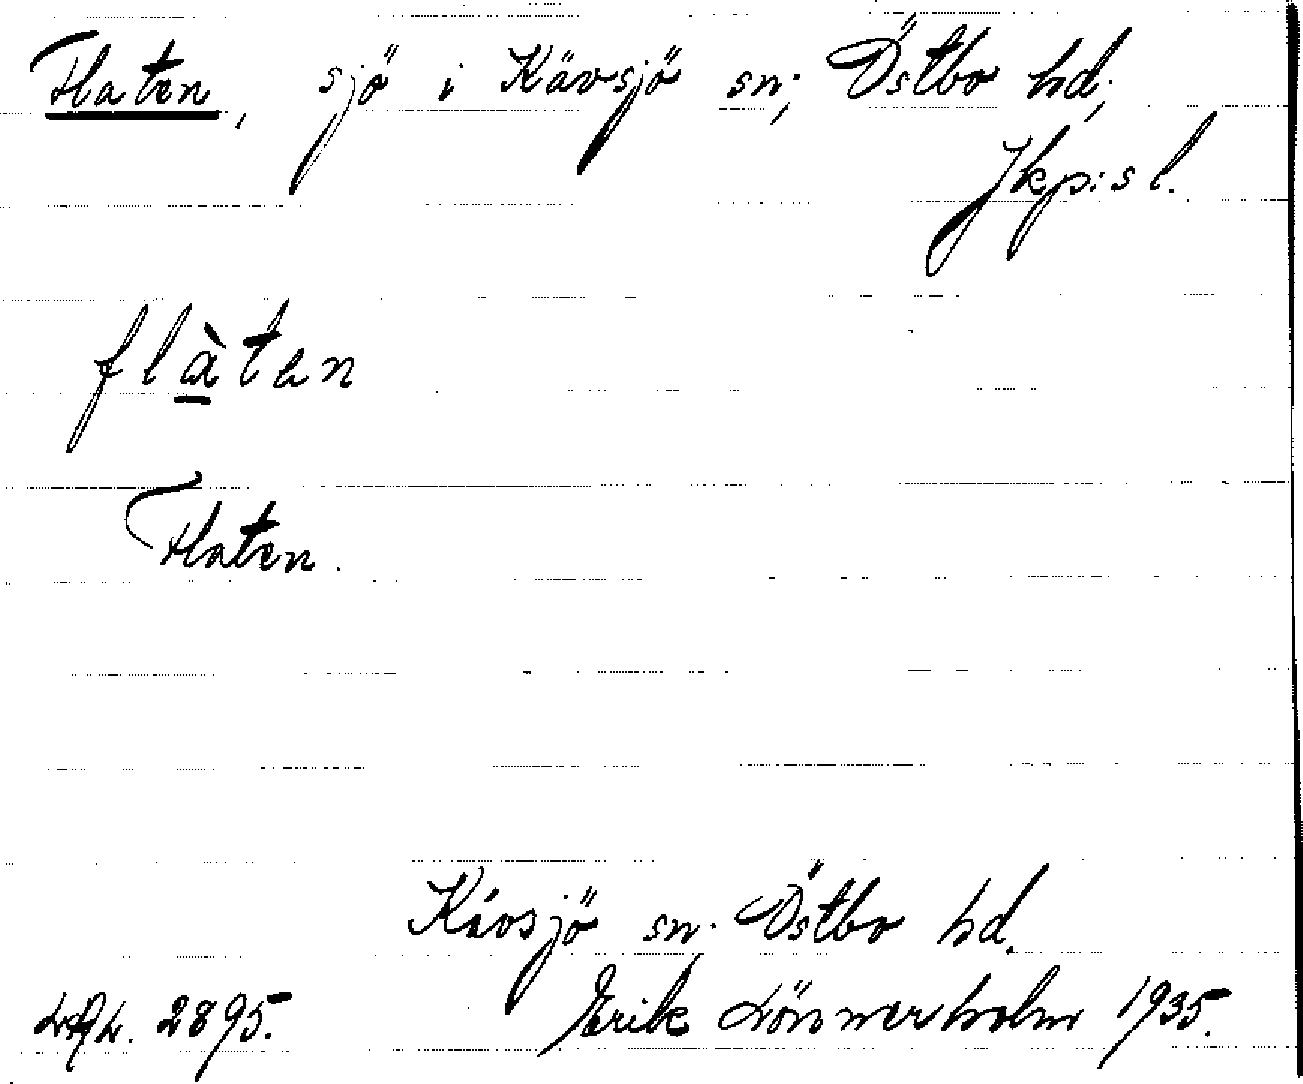 Flaten, sjö i Kävsjö sn; Östbo hd;
Jkp:s l.
flàtən
Flaten.
Kävsjö sn. Östbo hd.
2895. Erik Lönnerholm 1935.